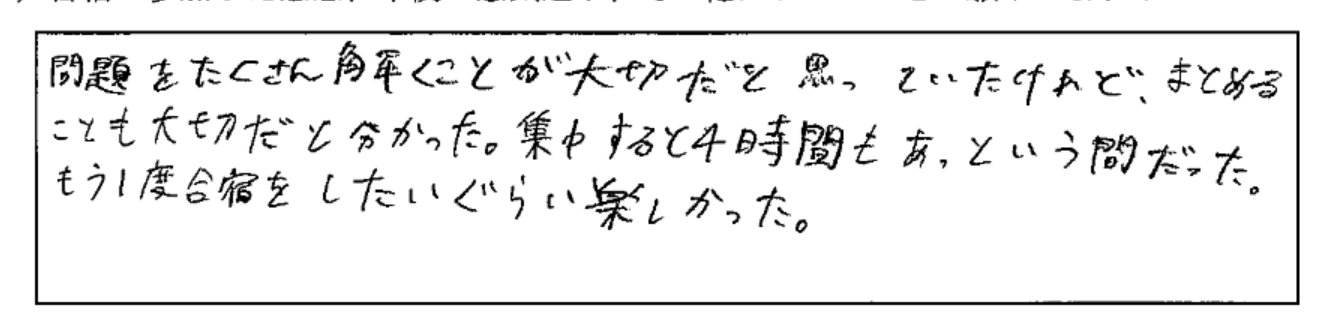 問題をたくさん解くことが大切だと思っていたけれど、まとめる
ことも大切だと分かった。集中すると4時間もあっという間だった。
もう1度合宿をしたいぐらい楽しかった。